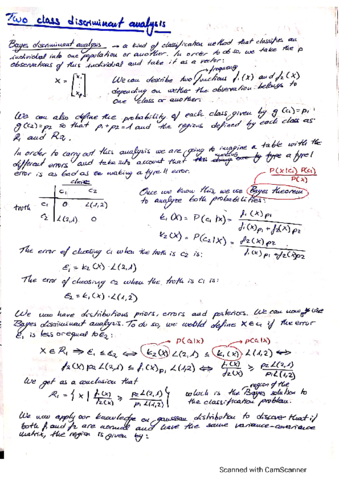 Two class discriminant analysis
Bayes discriminant analysis → a kind of classification method that classifies an
individual into one population or another. In order to do so, we take the p
observations of this individual and take it as a vector:
frequency
X = [x1 ⋮ xp] We can describe two functions f1(x) and f2(x)
depending on wether the observation belongs to
one class or another.
We can also define the probability of each class, given by g(c1) = p1,
g(c2) = p2 so that p1 + p2 = 1 and the regions defined by each class as
R1 and R2.
In order to carry out this analysis we are going to imagine a table with the
different errors and take into account that making a type I
error is as bad as making a type II error.
P(X|C1) P(C1) / P(X)
chose
C1 C2
C1 0 L(1,2)
truth
C2 L(2,1) 0
Once we know this, we use Bayes theorem
to analyse both probabilities:
t1(x) = P(C1|X) = f1(x)p1 / f1(x)p1 + f2(x)p2
t2(x) = P(C2|X) = f2(x)p2 / f1(x)p1 + f2(x)p2
The error of choosing c1 when the truth is c2 is:
E1 = t2(x) · L(2,1)
The error of choosing c2 when the truth is c1 is:
E2 = t1(x) · L(1,2)
We now have distributions priors, errors and posteriors. We can now use
Bayes discriminant analysis. To do so, we would define x ∈ c1 if the error
E1 is less or equal to E2:
P(C2|X) P(C1|X)
X ∈ R1 ⇒ E1 ≤ E2 ⟺ t2(x) L(2,1) ≤ t1(x) L(1,2) ⟺
f2(x) p2 L(2,1) ≤ f1(x) p1 L(1,2) ⟺ f1(x)/f2(x) ≥ p2 L(2,1)/p1 L(1,2)
We get as a conclusion that
region of the
R1 = { x | f1(x)/f2(x) ≥ p2 L(2,1)/p1 L(1,2) } which is the Bayes solution to
the classification problem.
We now apply our knowledge on gaussian distribution to discover that if
both f1 and f2 are normal and have the same variance-covariance
matrix, the region is given by:
Scanned with CamScanner